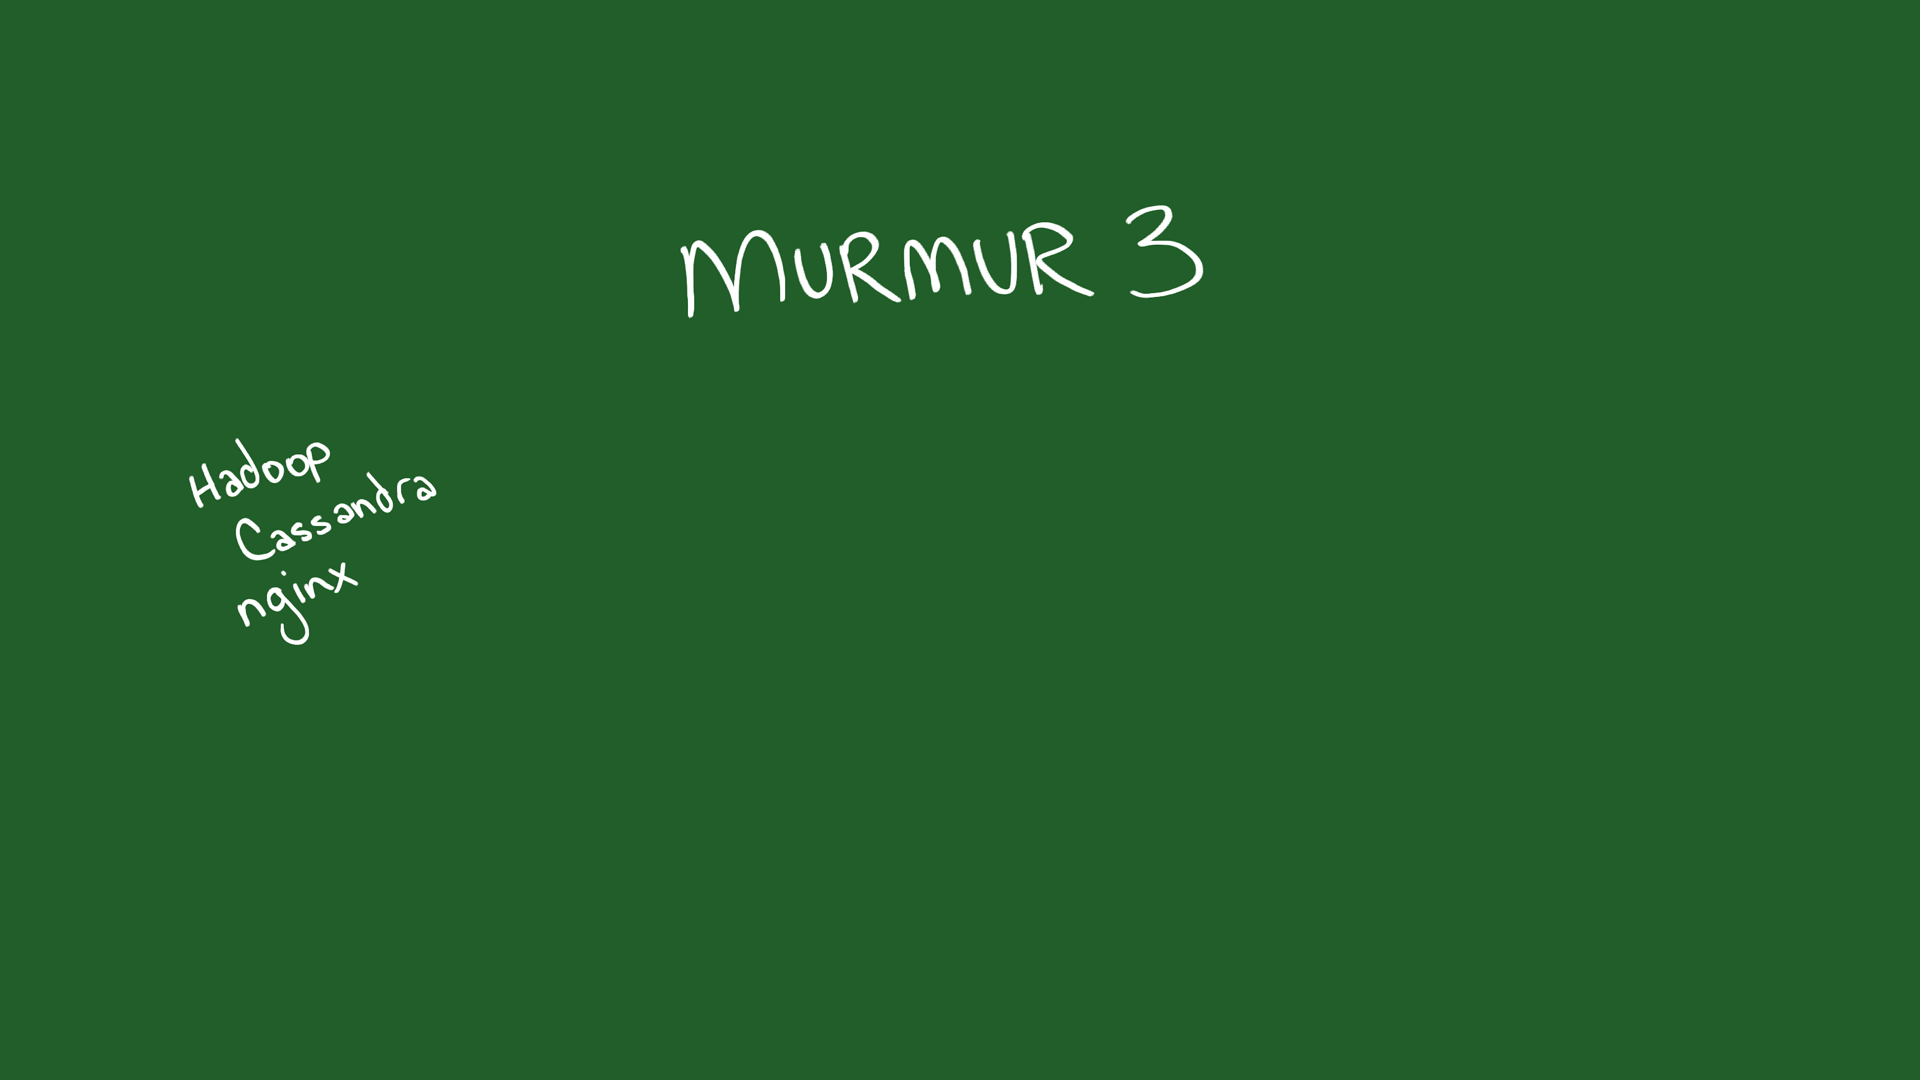 MURMUR 3
Hadoop
Cassandra
nginx